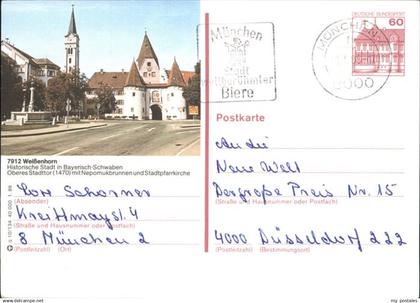 München
Stadt
weltberühmter
Biere
MÜNCHEN
8000
DEUTSCHE BUNDESPOST
60
Postkarte
7912 Weißenhorn
Historische Stadt in Bayerisch-Schwaben
Oberes Stadttor (1470) mit Nepomukbrunnen und Stadtpfarrkirche
(Absender)
Kreittmayst. 4
(Straße und Hausnummer oder Postfach)
8 München 2
(Postleitzahl) (Ort)
An die
Neue Welt
Der große Preis Nr. 15
(Straße und Hausnummer oder Postfach)
4000 Düsseldorf 222
(Postleitzahl) (Bestimmungsort)